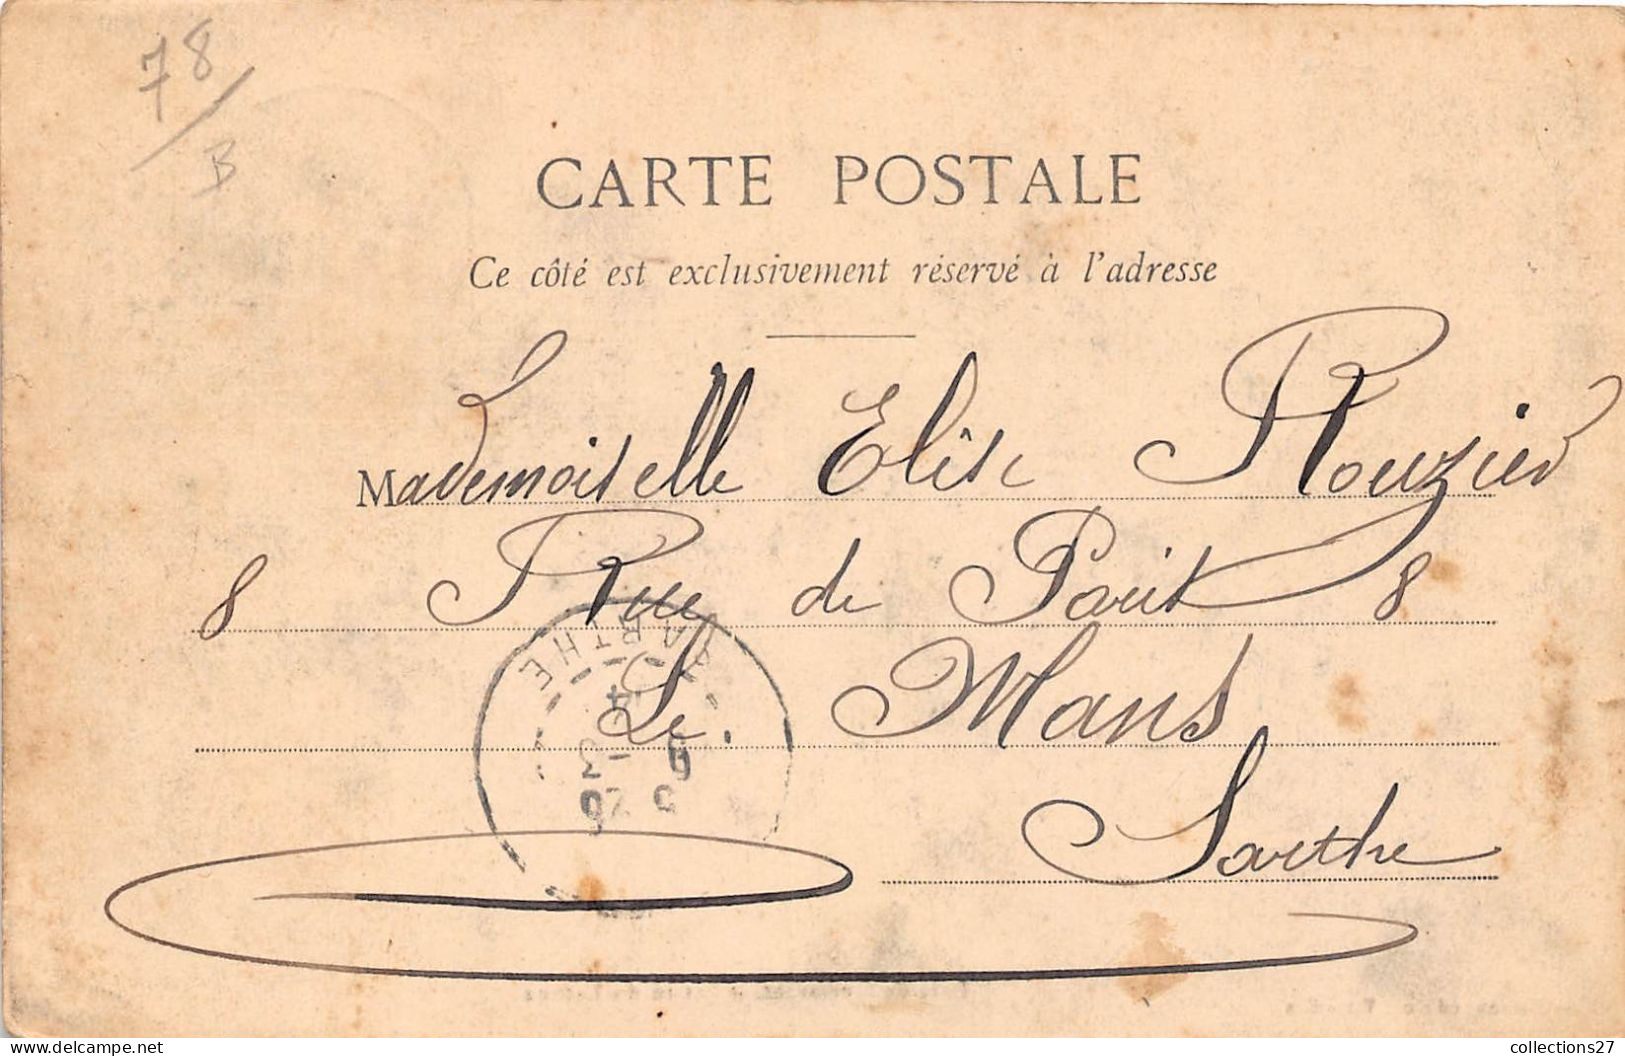 78
B
CARTE POSTALE
Ce côté est exclusivement réservé à l'adresse
Mademoiselle Elise Rouzier
8 Rue de Paris 8
Le Mans
Sarthe
SARTHE
collections27